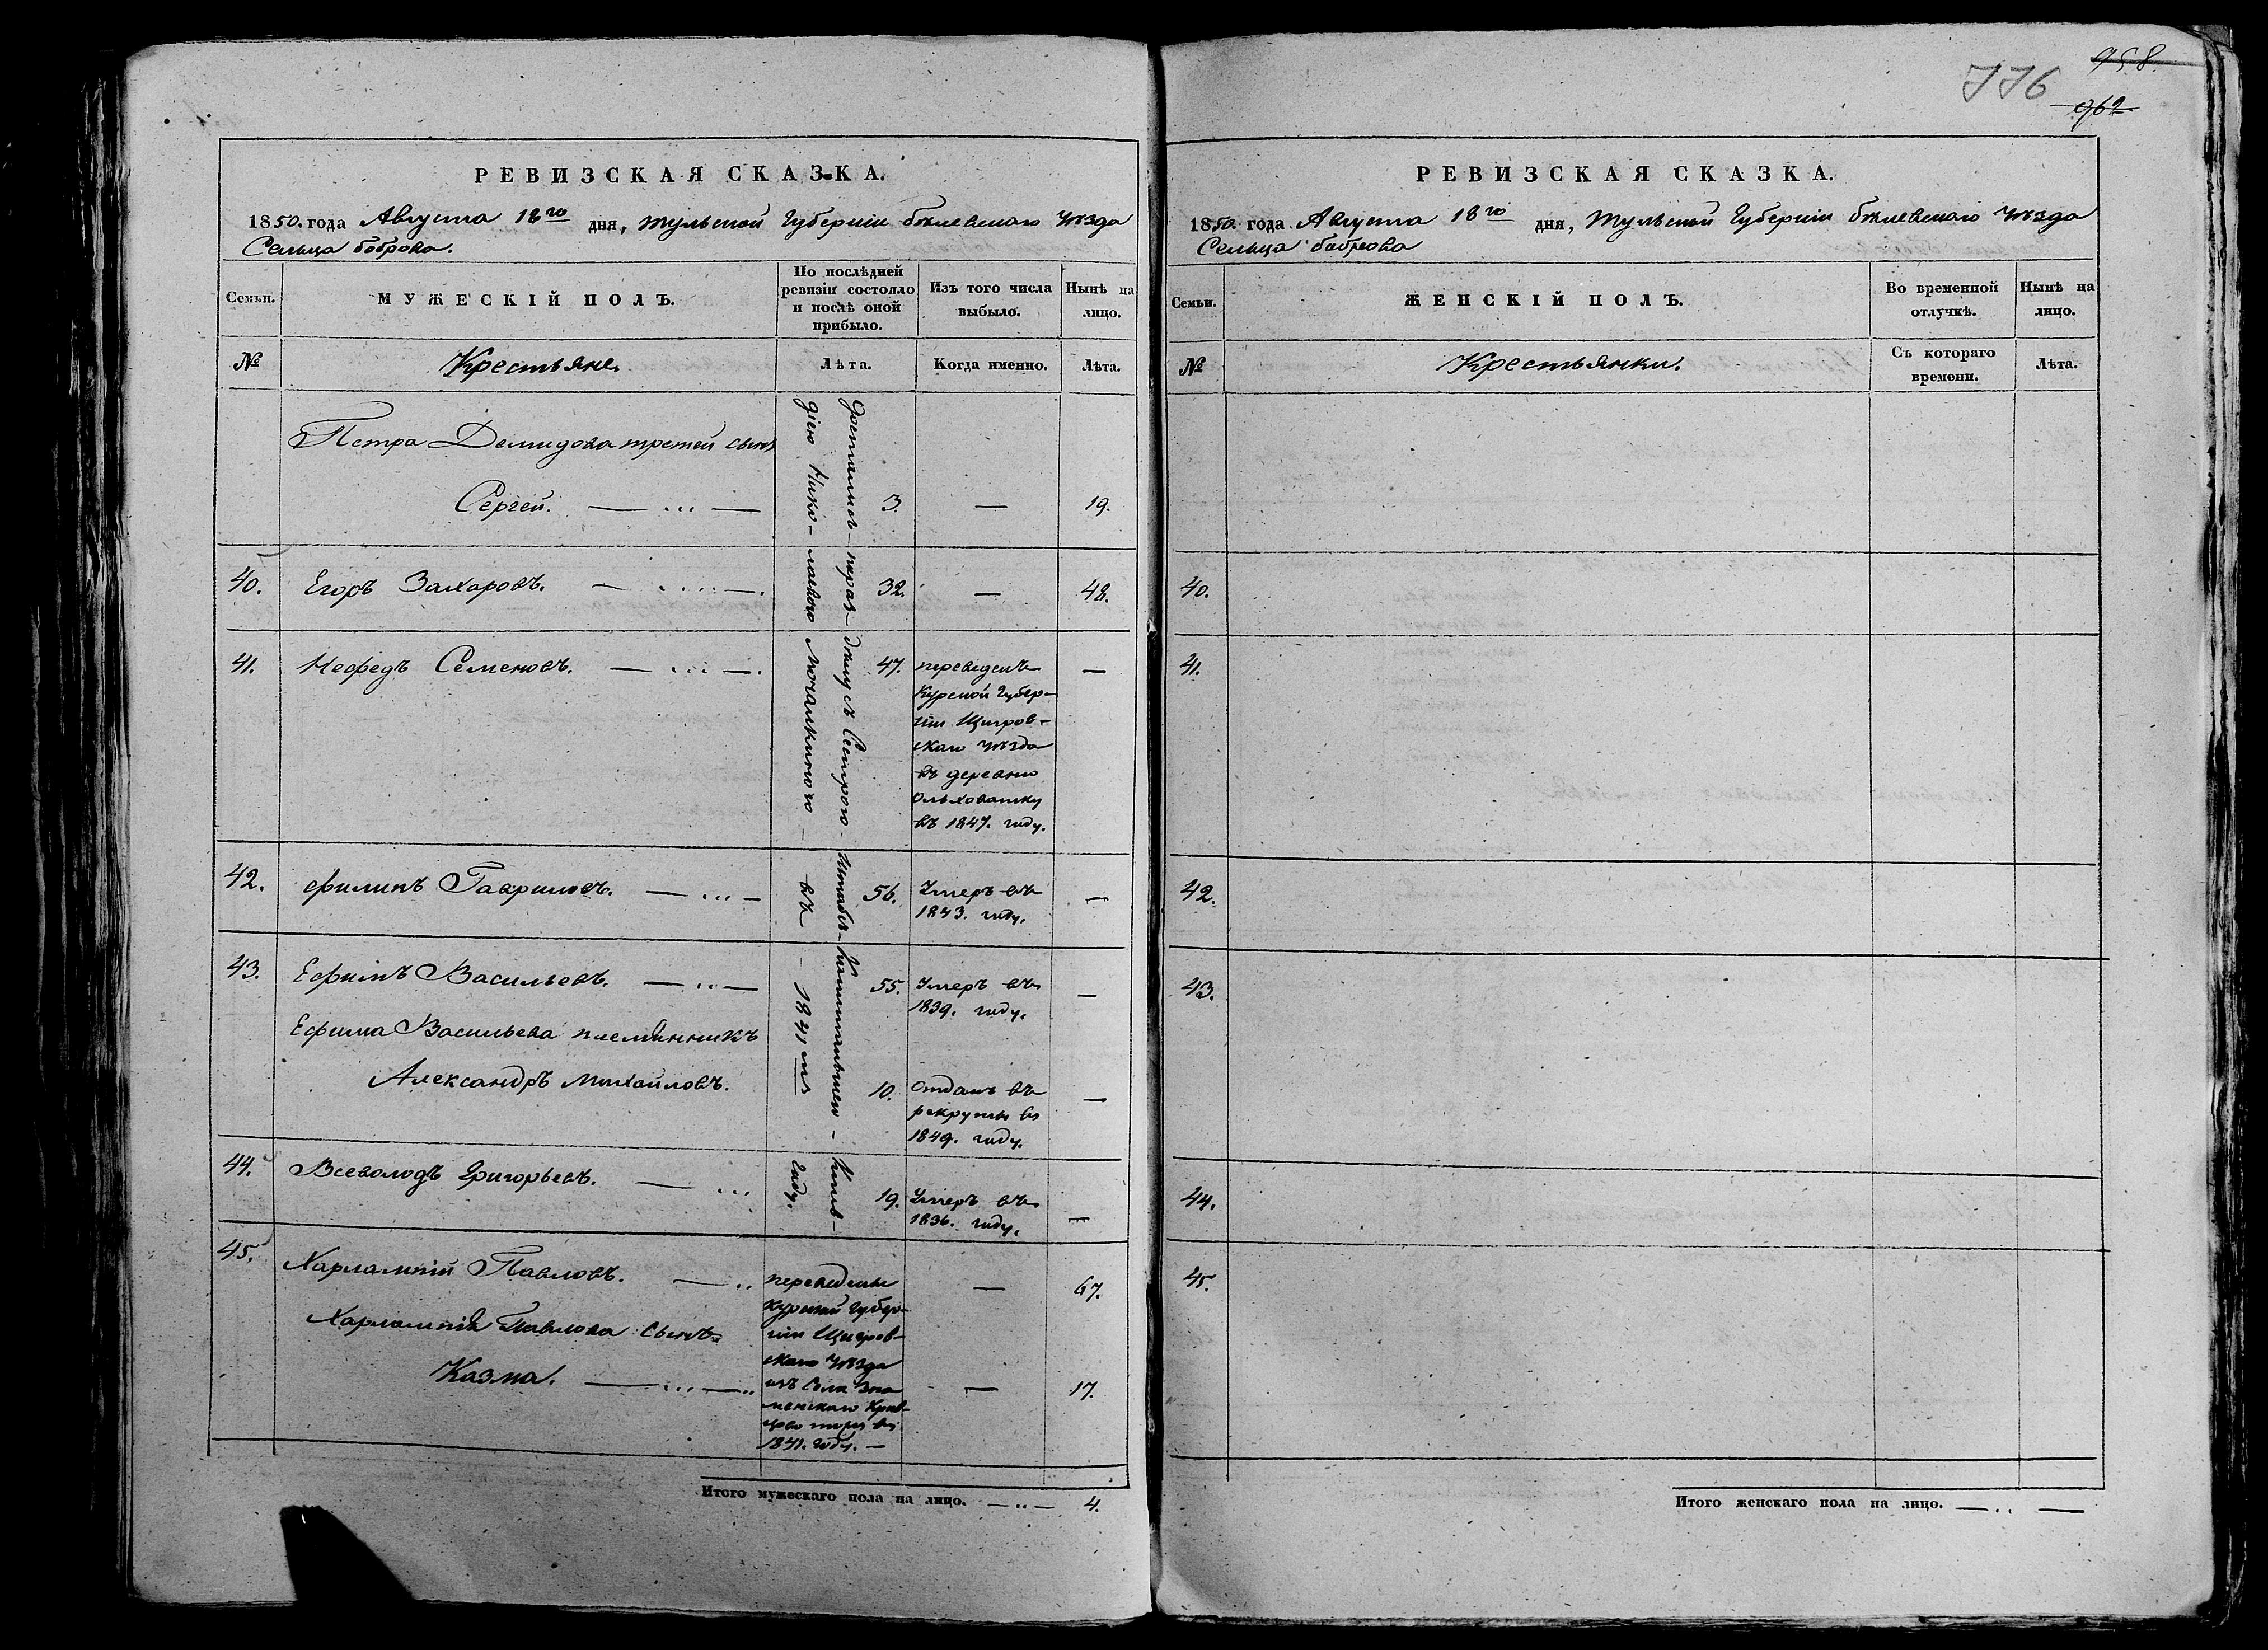 958.
776
962
РЕВИЗСКАЯ СКАЗКА.
1850. года Августа 18го дня, Тульской Губерніи Бѣлевскаго Уѣзда
Сельца Боброва.
Семьи.
МУЖЕСКІЙ ПОЛЪ.
По послѣдней
ревизіи состояло
и послѣ оной
прибыло.
Изъ того числа
выбыло.
Нынѣ на
лицо.
№
Крестьяне.
Лѣта.
Когда именно.
Лѣта.
Петра Демидова третей сынъ
Сергей. 3. — 19.
40. Егоръ Захаровъ. 32. — 48.
41. Нефедъ Семеновъ. 47. переведенъ —
Курской Губер-
ніи Щигров-
скаго Уѣзда
въ деревню
Ольховатку
въ 1847. году.
42. Филипъ Гавриловъ. 56. Умеръ въ —
1843. году.
43. Ефимъ Васильевъ. 55. Умеръ въ —
1839. году.
Ефима Васильева племянникъ
Александръ Михайловъ. 10. Отданъ въ —
рекруты въ
1849. году.
44. Всеволодъ Григорьевъ. 19. Умеръ въ —
1836. году.
45. Харлампій Павловъ. — 67.
Харлампія Павлова сынъ
Казма. — 17.
переведены
Курской Губер-
ніи Щигров-
скаго Уѣзда
изъ Села Зна
менскаго
въ
1841. году. —
Достались по раз-дѣлу съ Сестрою Штабсъ-Капитаншею
Нико-лаевною Мочалкиною въ 1841мъ году.
Итого мужескаго пола на лицо. 4.
РЕВИЗСКАЯ СКАЗКА.
1850. года Августа 18го дня, Тульской Губерніи Бѣлевскаго Уѣзда
Сельца Боброва
Семьи.
ЖЕНСКІЙ ПОЛЪ.
Во временной
отлучкѣ.
Нынѣ на
лицо.
№
Крестьянки.
Съ котораго
времени.
Лѣта.
40.
41.
42.
43.
44.
45.
Итого женскаго пола на лицо.